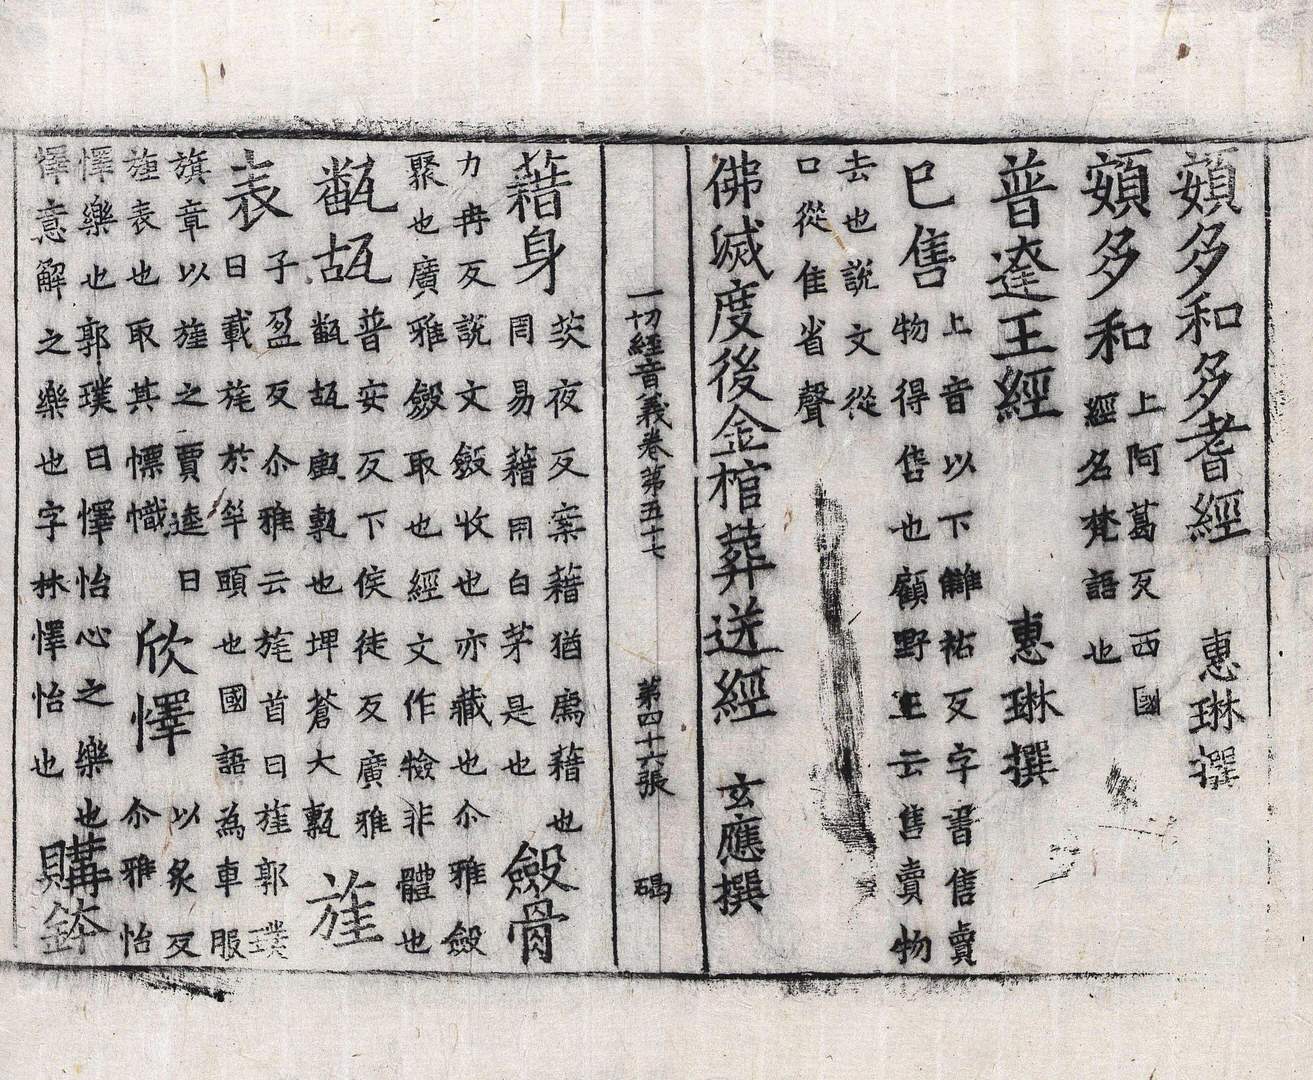 頞多和多耆經 惠琳撰
頞多和 上阿葛反西國
經名梵語也
普達王經 惠琳撰
已售 上音以下讎祐反字書售賣
物得售也顧野王云售賣物
去也說文從
口從隹省聲
佛滅度後金棺葬送經 玄應撰
一切經音義卷第五十七 第四十六張 碣
藉身 茨夜反案藉猶爲藉也
周易藉用白茅是也
斂骨
力冉反說文斂收也亦藏也尒雅斂
聚也廣雅斂取也經文作檢非體也
㽃瓳 普安反下侯徒反廣雅
㽃瓳甂甎也埤蒼大甎
旌
表 子盈反尒雅云旄首曰旌郭璞
曰載旄於竿頭也國語為車服
旗章以旌之賈逵曰
旌表也取其慓幟
欣懌 以炙反
尒雅怡
懌樂也郭璞曰懌怡心之樂也
懌意解之樂也字林懌怡也
購鉢